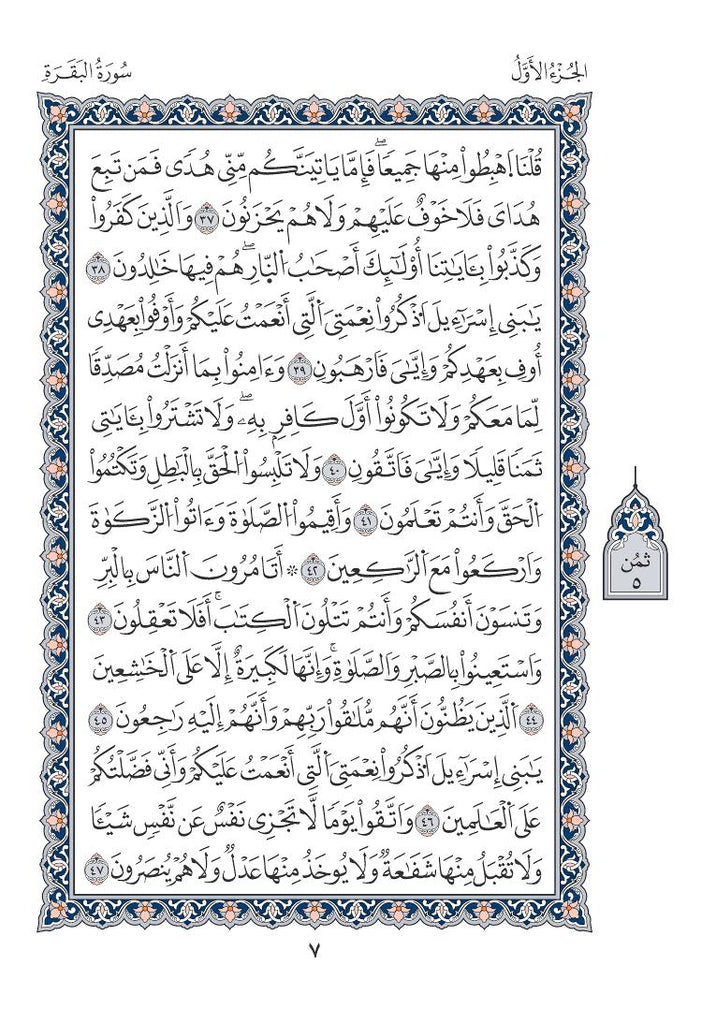 الجُزْءُ الأَوَّلُ
سُورَةُ البَقَرَةِ
قُلْنَا اَهْبِطُواْ مِنْهَا جَمِيعًاۖ فَإِمَّا يَاتِيَنَّكُم مِّنِّي هُدًى فَمَن تَبِعَ
هُدَايَ فَلَا خَوْفٌ عَلَيْهِمْ وَلَا هُمْ يَحْزَنُونَ ٣٧ وَالَّذِينَ كَفَرُواْ
وَكَذَّبُواْ بِـَٔايَٰتِنَا أُوْلَٰٓئِكَ أَصْحَٰبُ اُلنّ۪ارِۖ هُمْ فِيهَا خَٰلِدُونَ ٣٨
يَٰبَنِي إِسْرَآءِيلَ اَذْكُرُواْ نِعْمَتِيَ اَلَّتِي أَنْعَمْتُ عَلَيْكُمْ وَأَوْفُواْ بِعَهْدِي
أُوفِ بِعَهْدِكُمْ وَإِيَّٰيَ فَارْهَبُونِ ٣٩ وَءَامِنُواْ بِمَا أَنزَلْتُ مُصَدِّقًا
لِّمَا مَعَكُمْ وَلَا تَكُونُواْ أَوَّلَ كَافِرٍۭ بِهِۦۖ وَلَا تَشْتَرُواْ بِـَٔايَٰتِي
ثَمَنًا قَلِيلًا وَإِيَّٰيَ فَاتَّقُونِ ٤٠ وَلَا تَلْبِسُواْ اُلْحَقَّ بِالْبَٰطِلِ وَتَكْتُمُواْ
اُلْحَقَّ وَأَنتُمْ تَعْلَمُونَ ٤١ وَأَقِيمُواْ اُلصَّلَوٰةَ وَءَاتُواْ اُلزَّكَوٰةَ
وَارْكَعُواْ مَعَ اَلرَّٰكِعِينَ ٤٢ * أَتَامُرُونَ اَلنَّاسَ بِالْبِرِّ
وَتَنسَوْنَ أَنفُسَكُمْ وَأَنتُمْ تَتْلُونَ اَلْكِتَٰبَۚ أَفَلَا تَعْقِلُونَ ٤٣
وَاسْتَعِينُواْ بِالصَّبْرِ وَالصَّلَوٰةِۚ وَإِنَّهَا لَكَبِيرَةٌ إِلَّا عَلَى اَلْخَٰشِعِينَ
٤٤ اَلَّذِينَ يَظُنُّونَ أَنَّهُم مُّلَٰقُواْ رَبِّهِمْ وَأَنَّهُمْ إِلَيْهِ رَٰجِعُونَ ٤٥
يَٰبَنِي إِسْرَآءِيلَ اَذْكُرُواْ نِعْمَتِيَ اَلَّتِي أَنْعَمْتُ عَلَيْكُمْ وَأَنِّي فَضَّلْتُكُمْ
عَلَى اَلْعَٰلَمِينَ ٤٦ وَاتَّقُواْ يَوْمًا لَّا تَجْزِي نَفْسٌ عَن نَّفْسٍ شَيْـًٔا
وَلَا تُقْبَلُ مِنْهَا شَفَٰعَةٌ وَلَا يُوخَذُ مِنْهَا عَدْلٌ وَلَا هُمْ يُنصَرُونَ ٤٧
ثُمُن
٥
٧